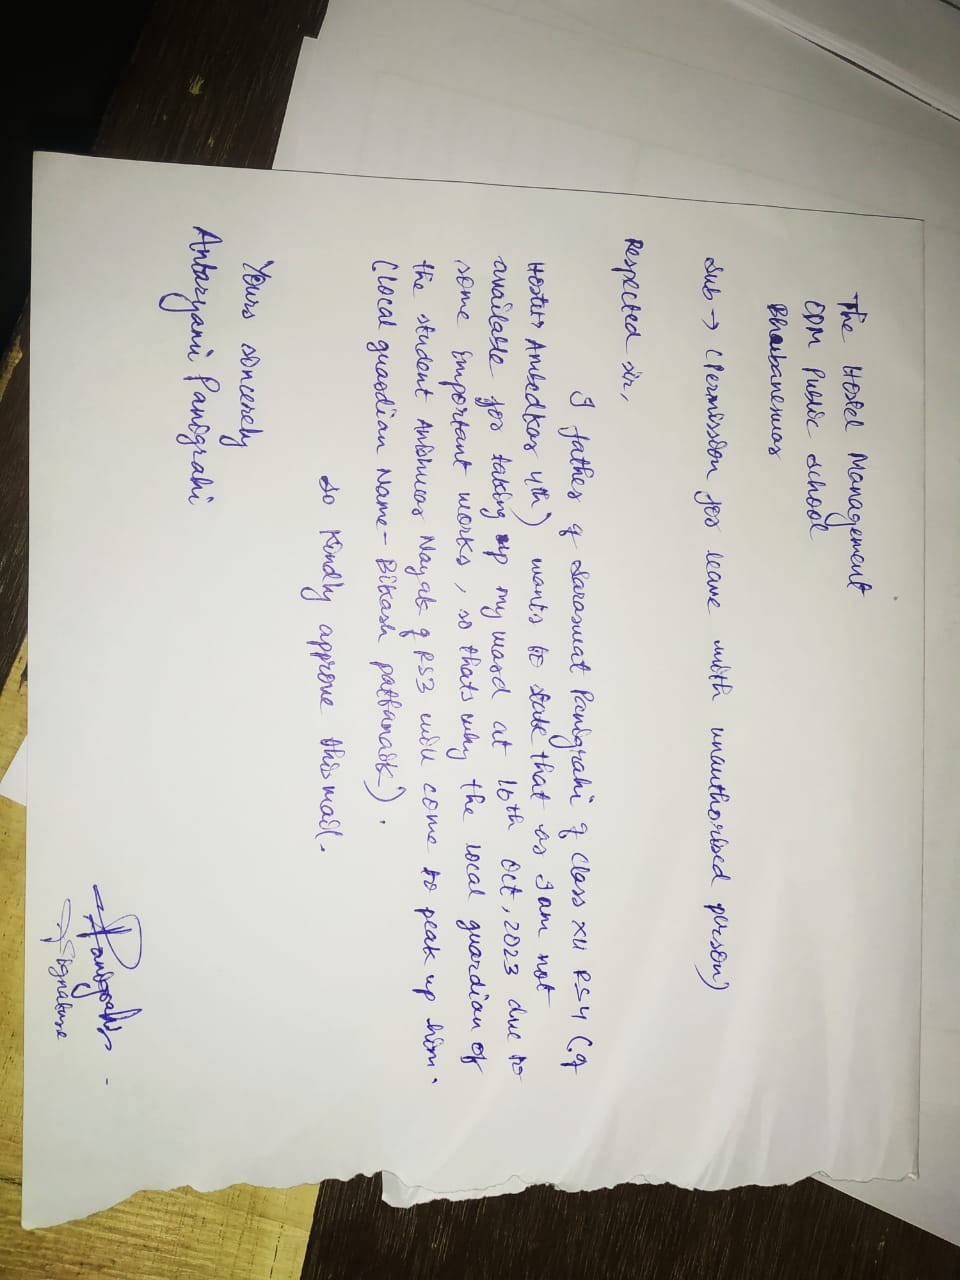 The Hostel Management
ODM Public School
Bhubaneswar
Sub → (Permission for leave with unauthorised person)
Respected sir,
I father of Saraswat Panigrahi of class XII RS4 (of
Hostel, Ambedkar 4th) wants to state that as I am not
available for taking up my ward at 16th Oct, 2023 due to
some important works, so thats why the local guardian of
the student Nayak of RS3 will come to peak up him.
(Local guardian Name - Bikash pattanaik).
So kindly approve this mail.
Yours sincerely
Antaryami Panigrahi
Panigrahi
Signature